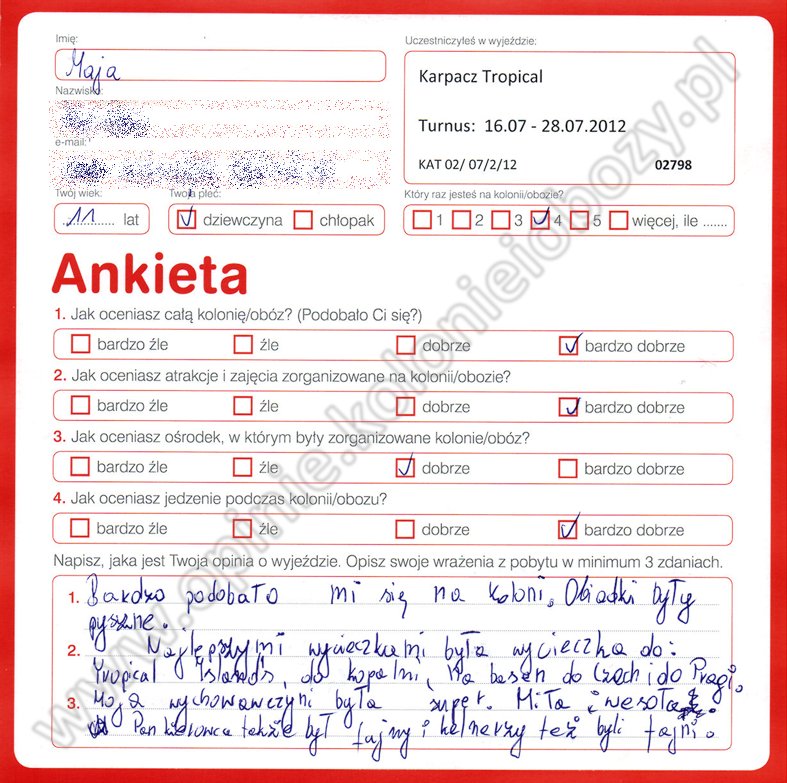 Imię:
Maja
Nazwisko:
e-mail:
Twój wiek:
11 lat
Twoja płeć:
dziewczyna chłopak
Uczestniczyłeś w wyjeździe:
Karpacz Tropical
Turnus: 16.07 - 28.07.2012
KAT 02/ 07/2/12 02798
Który raz jesteś na kolonii/obozie?
1 2 3 4 5 więcej, ile .......
Ankieta
1. Jak oceniasz całą kolonię/obóz? (Podobało Ci się?)
bardzo źle źle dobrze bardzo dobrze
2. Jak oceniasz atrakcje i zajęcia zorganizowane na kolonii/obozie?
bardzo źle źle dobrze bardzo dobrze
3. Jak oceniasz ośrodek, w którym były zorganizowane kolonie/obóz?
bardzo źle źle dobrze bardzo dobrze
4. Jak oceniasz jedzenie podczas kolonii/obozu?
bardzo źle źle dobrze bardzo dobrze
Napisz, jaka jest Twoja opinia o wyjeździe. Opisz swoje wrażenia z pobytu w minimum 3 zdaniach.
1. Bardzo podobało mi się na koloni. Obiadki były
pyszne.
2. Najlepszymi wycieczkami była wycieczka do:
Tropical Islands, do kopalni, na basen do Czech i do Pragi.
3. Moja wychowawczyni była super. Miła i wesoła.
Pan kierowca także był fajny i kelnerzy też byli fajni.
www.opinie.kolonieiobozy.pl